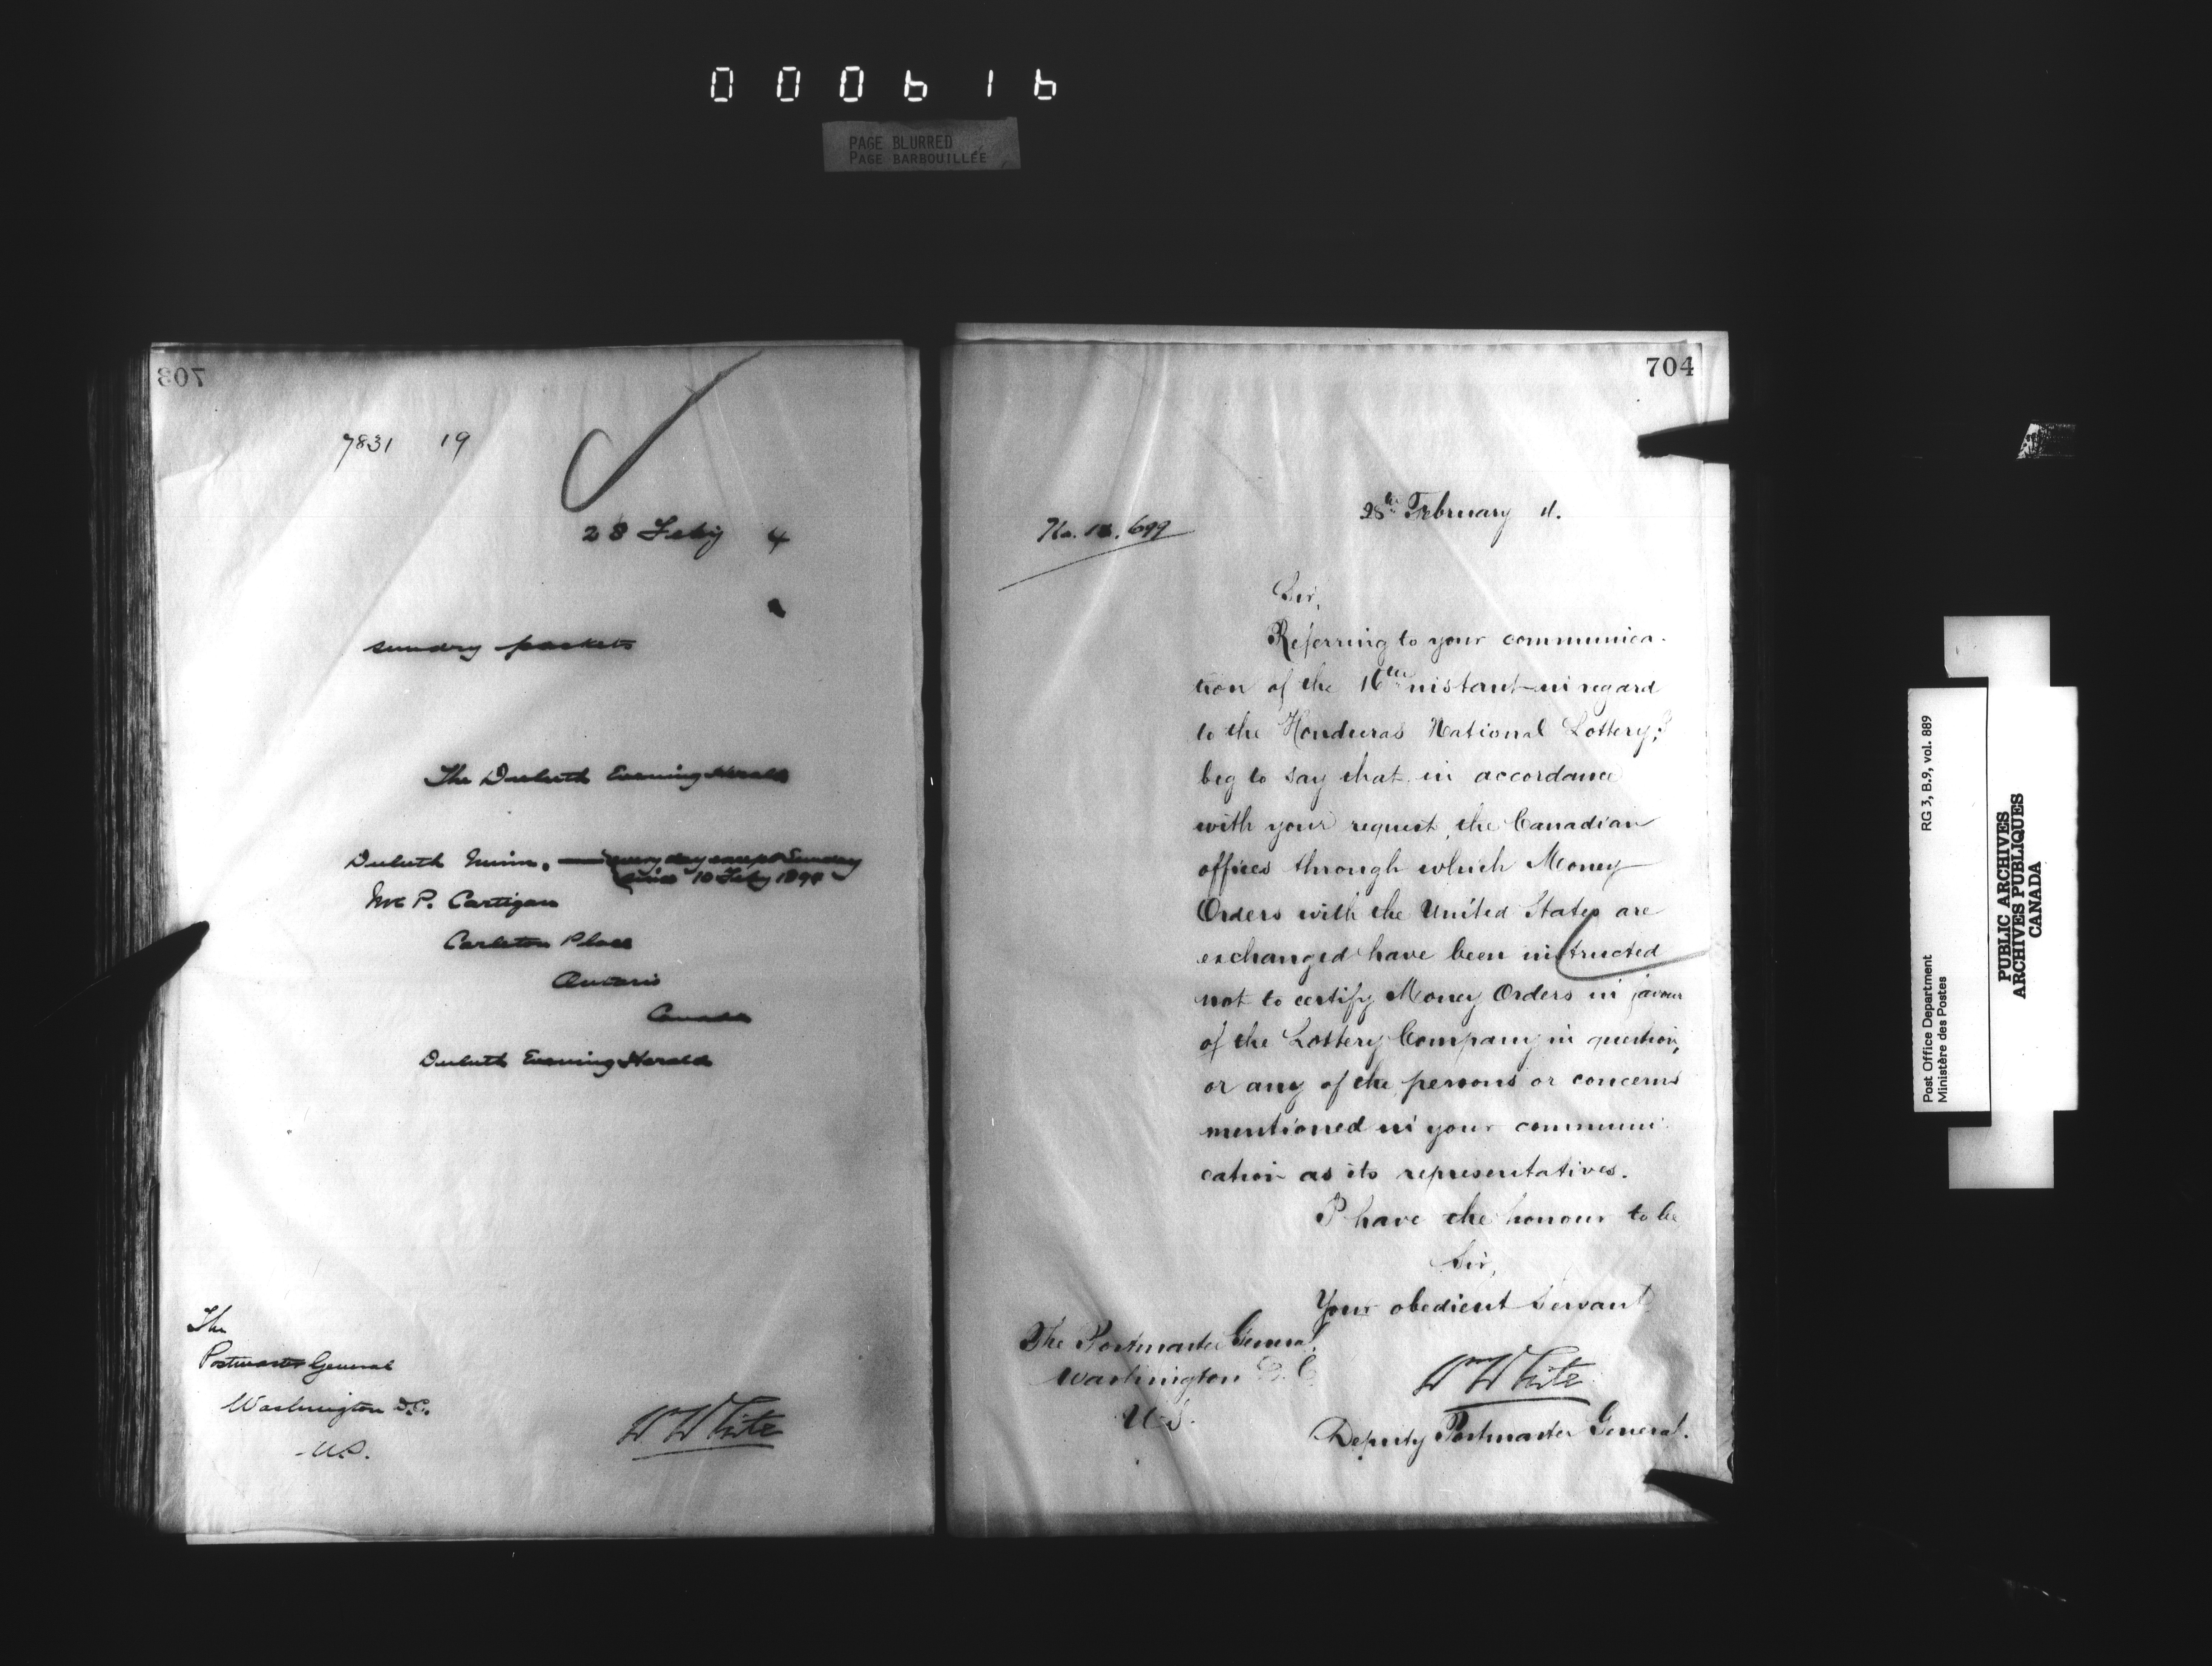 000616
PAGE BLURRED
PAGE BARBOUILLÉE
703
7831 19
28 Feby 4
sundry packets
The Duluth Evening Herald
Duluth Minn. — every day except Sunday
since 10 Feby 1894
Mr P. Cartigan
Carleton Place
Ontario
Canada
Duluth Evening Herald
The
Postmaster General
Washington D.C.
U.S.
W White
704
28th February 4.
No. 699
Sir,
Referring to your communica-
tion of the 16th instant in regard
to the Honduras National Lottery, I
beg to say that in accordance
with your request, the Canadian
offices through which Money
Orders with the United States are
exchanged have been instructed
not to certify Money Orders in favour
of the Lottery Company in question,
or any of the persons or concerns
mentioned in your communi-
cation as its representatives.
I have the honour to be
Sir,
Your obedient Servant
The Postmaster General,
Washington D.C.
U.S.
Wm White
Deputy Postmaster General.
Post Office Department
Ministère des Postes
RG 3, B.9, vol. 889
PUBLIC ARCHIVES
ARCHIVES PUBLIQUES
CANADA